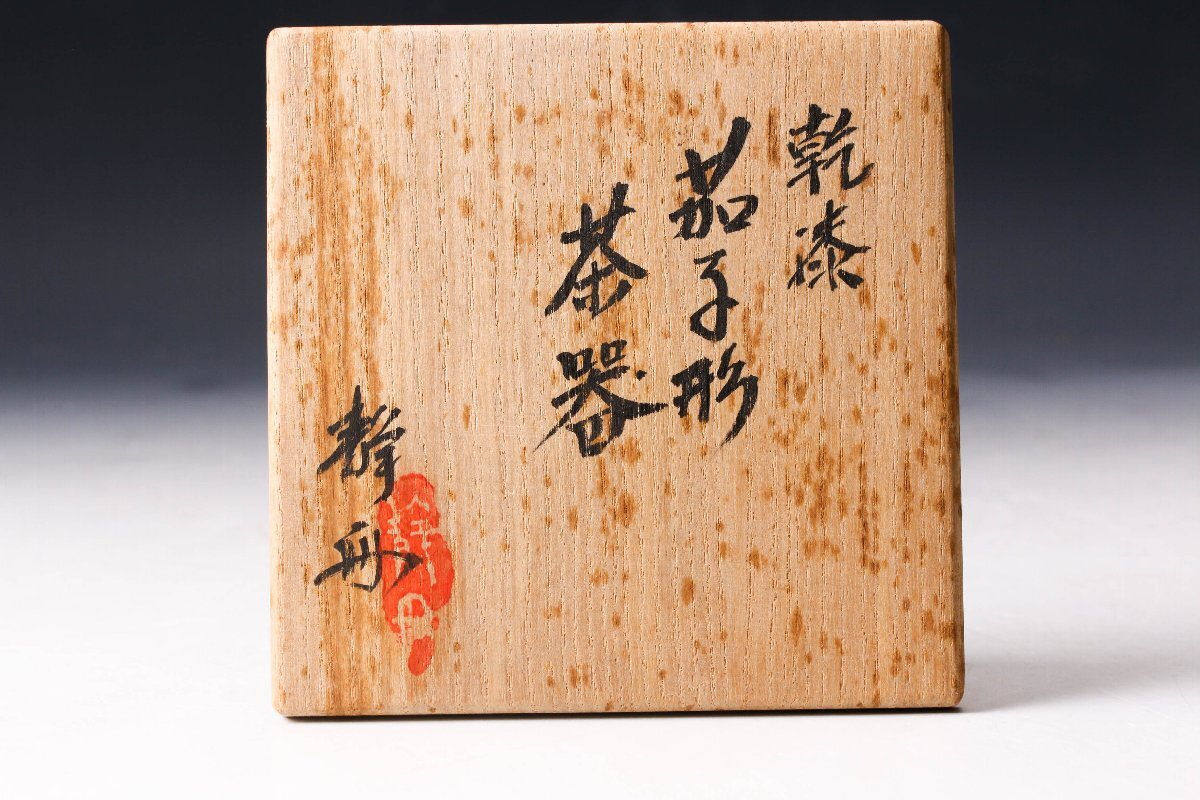 乾漆
茄子形
茶器
静舟